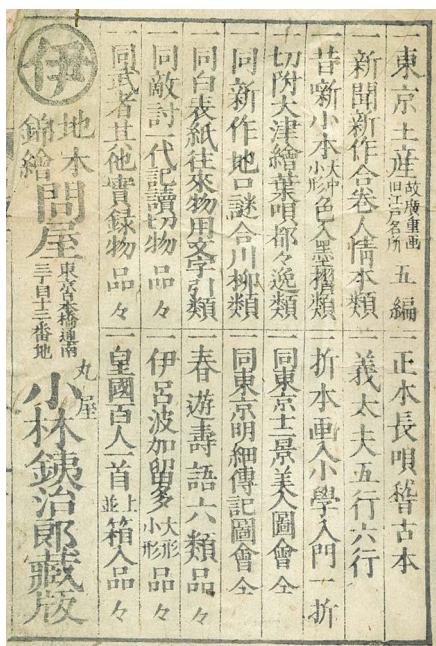 一東京土産 故廣重画 旧江戸名所 五編
一新聞新作合巻人情本類
一昔噺小本 大中小形 色入墨摺類
一切附大津繪葉唄都々逸類
一同新作地口謎合川柳類
一同白表紙往來物用文字引類
一同敵討一代記讀切物品々
一同武者其他實録物品々
一正本長唄稽古本
一義太夫五行六行
一折本画入小學入門一折
一同東京十二景美人圖會全
一同東京明細傳記圖會全
一春遊壽語六類品々
一伊呂波加留多 大形 小形 品々
一皇國百人一首 上並 箱入品々
伊
地本
錦繪
問屋
東亰京橋通南
三丁目十三番地
丸屋
小林銕治郎藏版